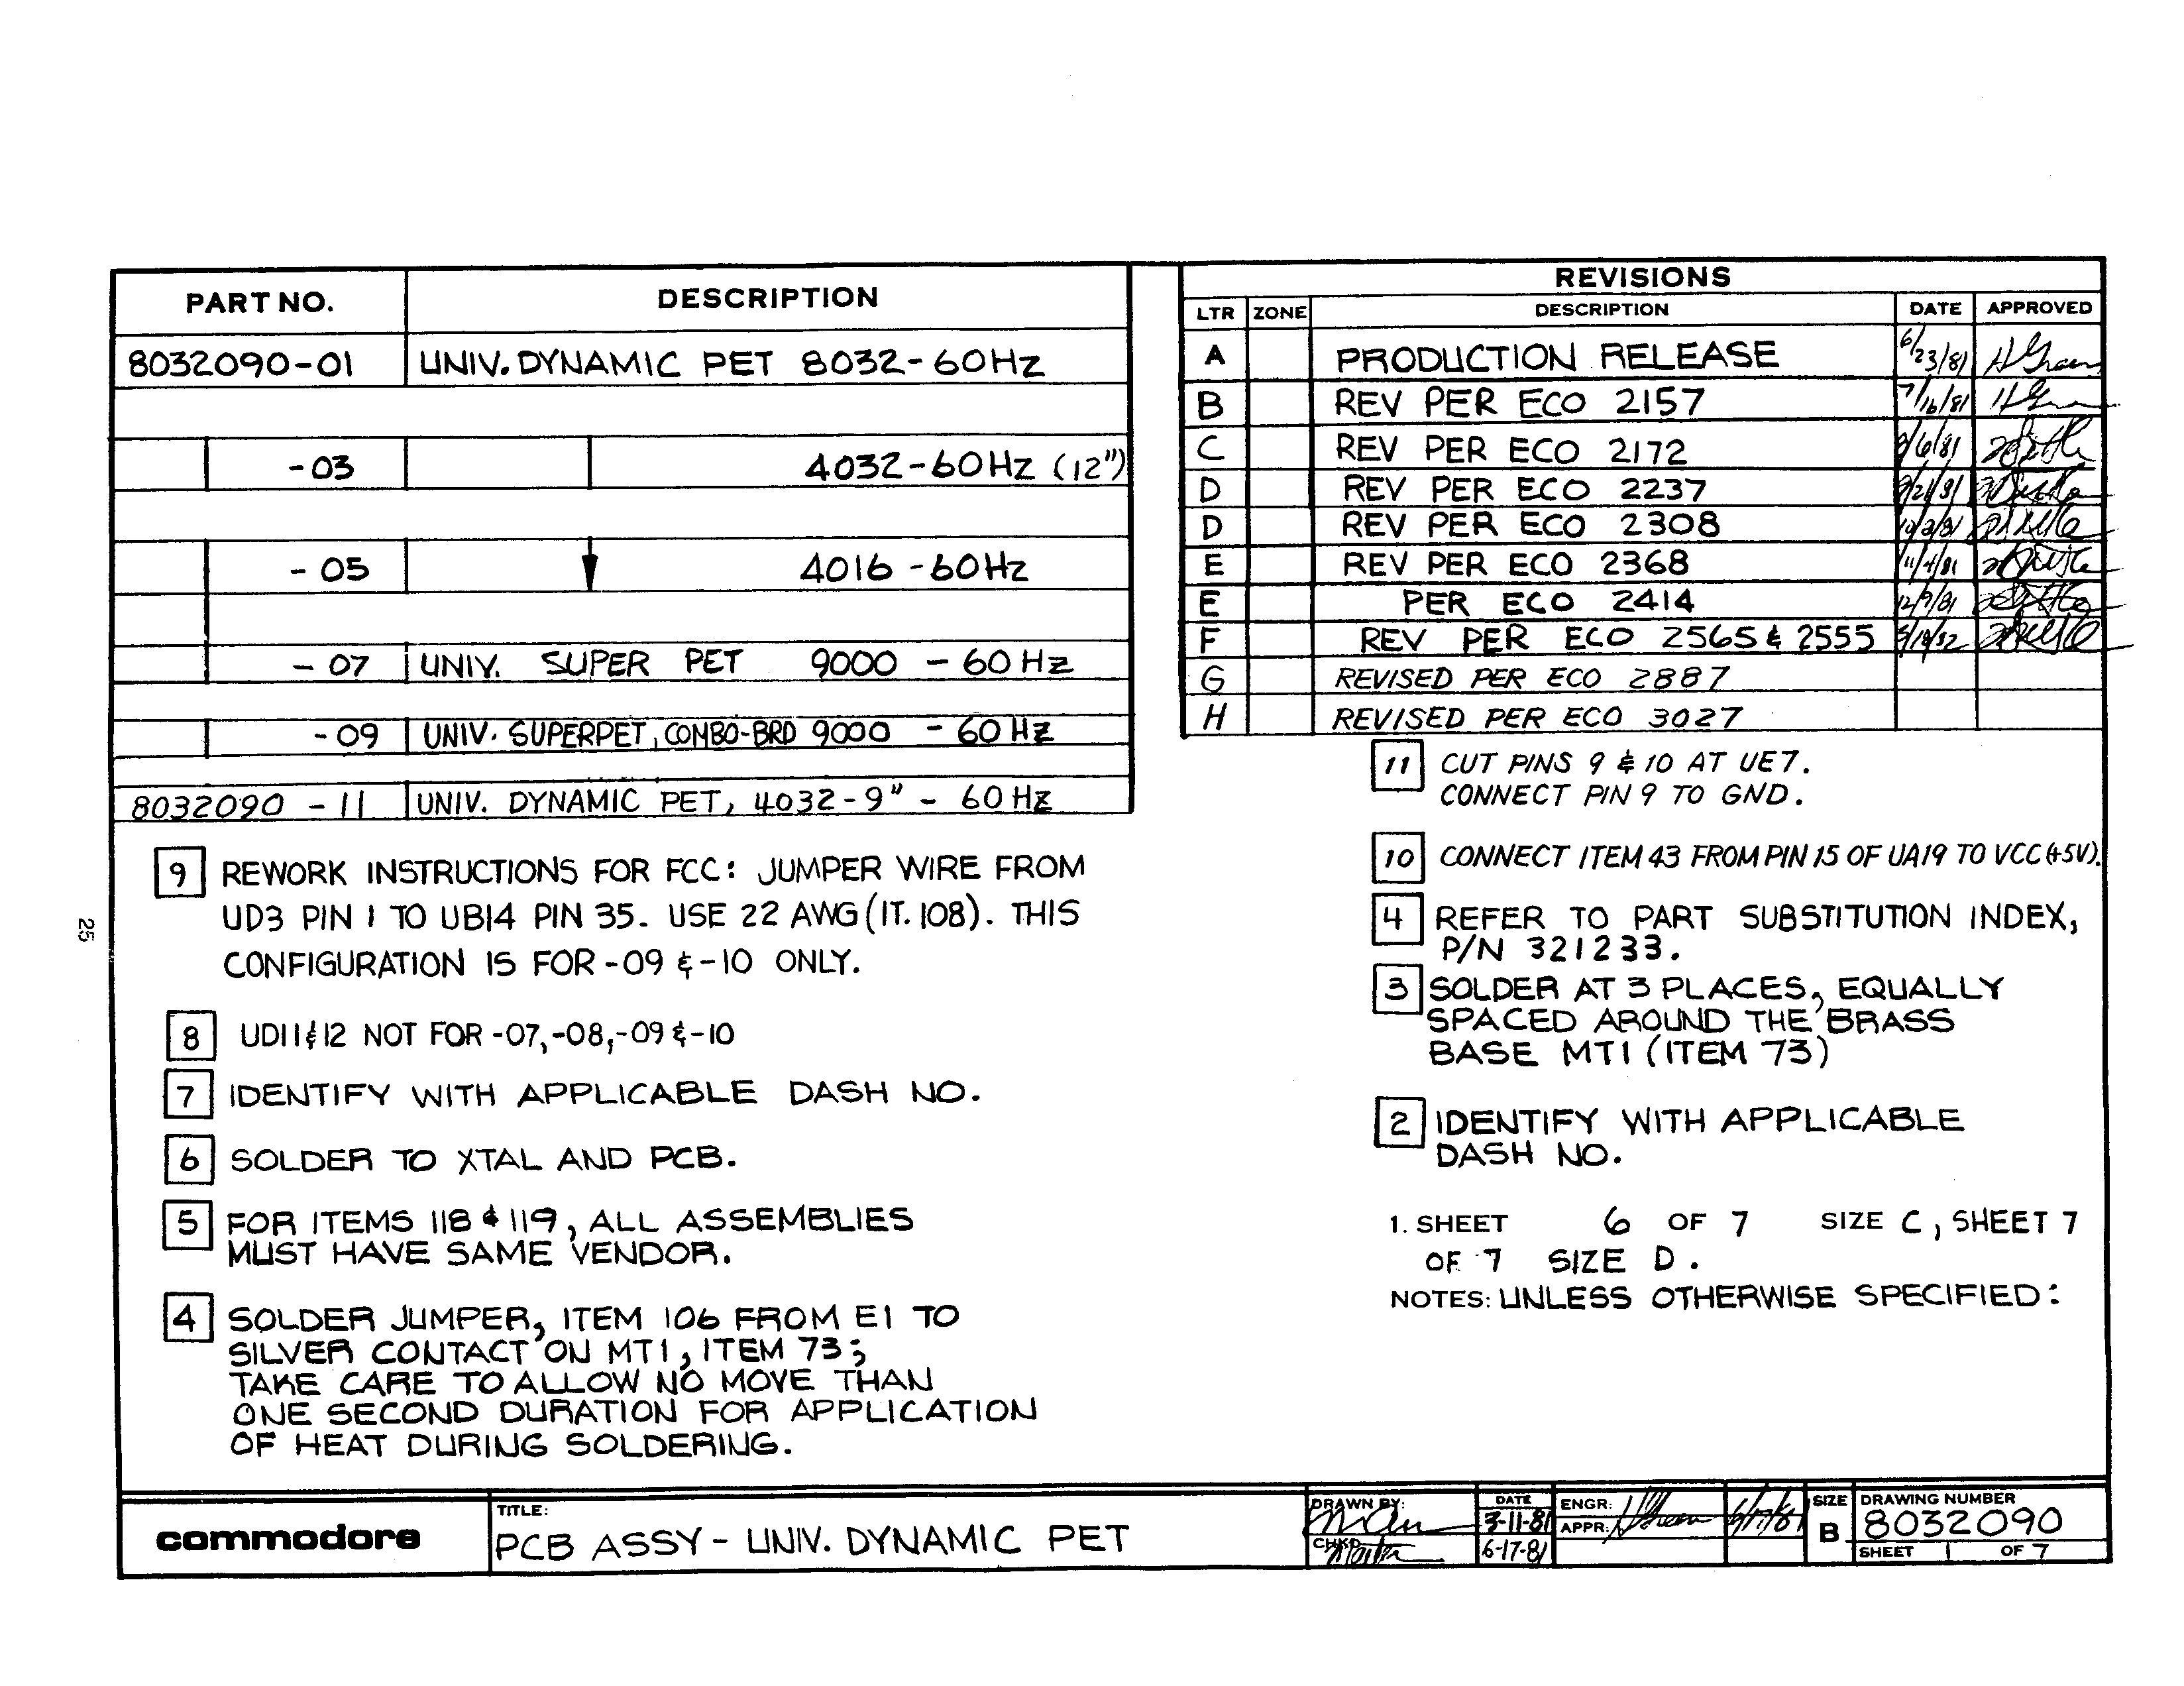 PART NO. DESCRIPTION
8032090-01 UNIV. DYNAMIC PET 8032-60Hz
-03 4032-60Hz (12")
-05 4016-60Hz
-07 UNIV. SUPER PET 9000 - 60Hz
-09 UNIV. SUPERPET, COMBO-BRD 9000 - 60Hz
8032090 - 11 UNIV. DYNAMIC PET, 4032-9" - 60Hz
REVISIONS
LTR ZONE DESCRIPTION DATE APPROVED
A PRODUCTION RELEASE 6/23/81
B REV PER ECO 2157 7/16/81
C REV PER ECO 2172
D REV PER ECO 2237
D REV PER ECO 2308
E REV PER ECO 2368 11/4/81
E PER ECO 2414 12/9/81
F REV PER ECO 2565 & 2555
G REVISED PER ECO 2887
H REVISED PER ECO 3027
9 REWORK INSTRUCTIONS FOR FCC: JUMPER WIRE FROM
UD3 PIN 1 TO UB14 PIN 35. USE 22 AWG (IT. 108). THIS
CONFIGURATION IS FOR -09 & -10 ONLY.
8 UD11&12 NOT FOR -07,-08,-09 & -10
7 IDENTIFY WITH APPLICABLE DASH NO.
6 SOLDER TO XTAL AND PCB.
5 FOR ITEMS 118 & 119, ALL ASSEMBLIES
MUST HAVE SAME VENDOR.
4 SOLDER JUMPER, ITEM 106 FROM E1 TO
SILVER CONTACT ON MT1, ITEM 73;
TAKE CARE TO ALLOW NO MOVE THAN
ONE SECOND DURATION FOR APPLICATION
OF HEAT DURING SOLDERING.
11 CUT PINS 9 & 10 AT UE7.
CONNECT PIN 9 TO GND.
10 CONNECT ITEM 43 FROM PIN 15 OF UA19 TO VCC (+5V).
4 REFER TO PART SUBSTITUTION INDEX,
P/N 321233.
3 SOLDER AT 3 PLACES, EQUALLY
SPACED AROUND THE BRASS
BASE MT1 (ITEM 73)
2 IDENTIFY WITH APPLICABLE
DASH NO.
1. SHEET 6 OF 7 SIZE C, SHEET 7
OF 7 SIZE D.
NOTES: UNLESS OTHERWISE SPECIFIED:
25
commodore
TITLE:
PCB ASSY - UNIV. DYNAMIC PET
DRAWN BY:
CHKD
DATE
3-11-81
6-17-81
ENGR:
APPR:
6/17/81
SIZE
B
DRAWING NUMBER
8032090
SHEET 1 OF 7